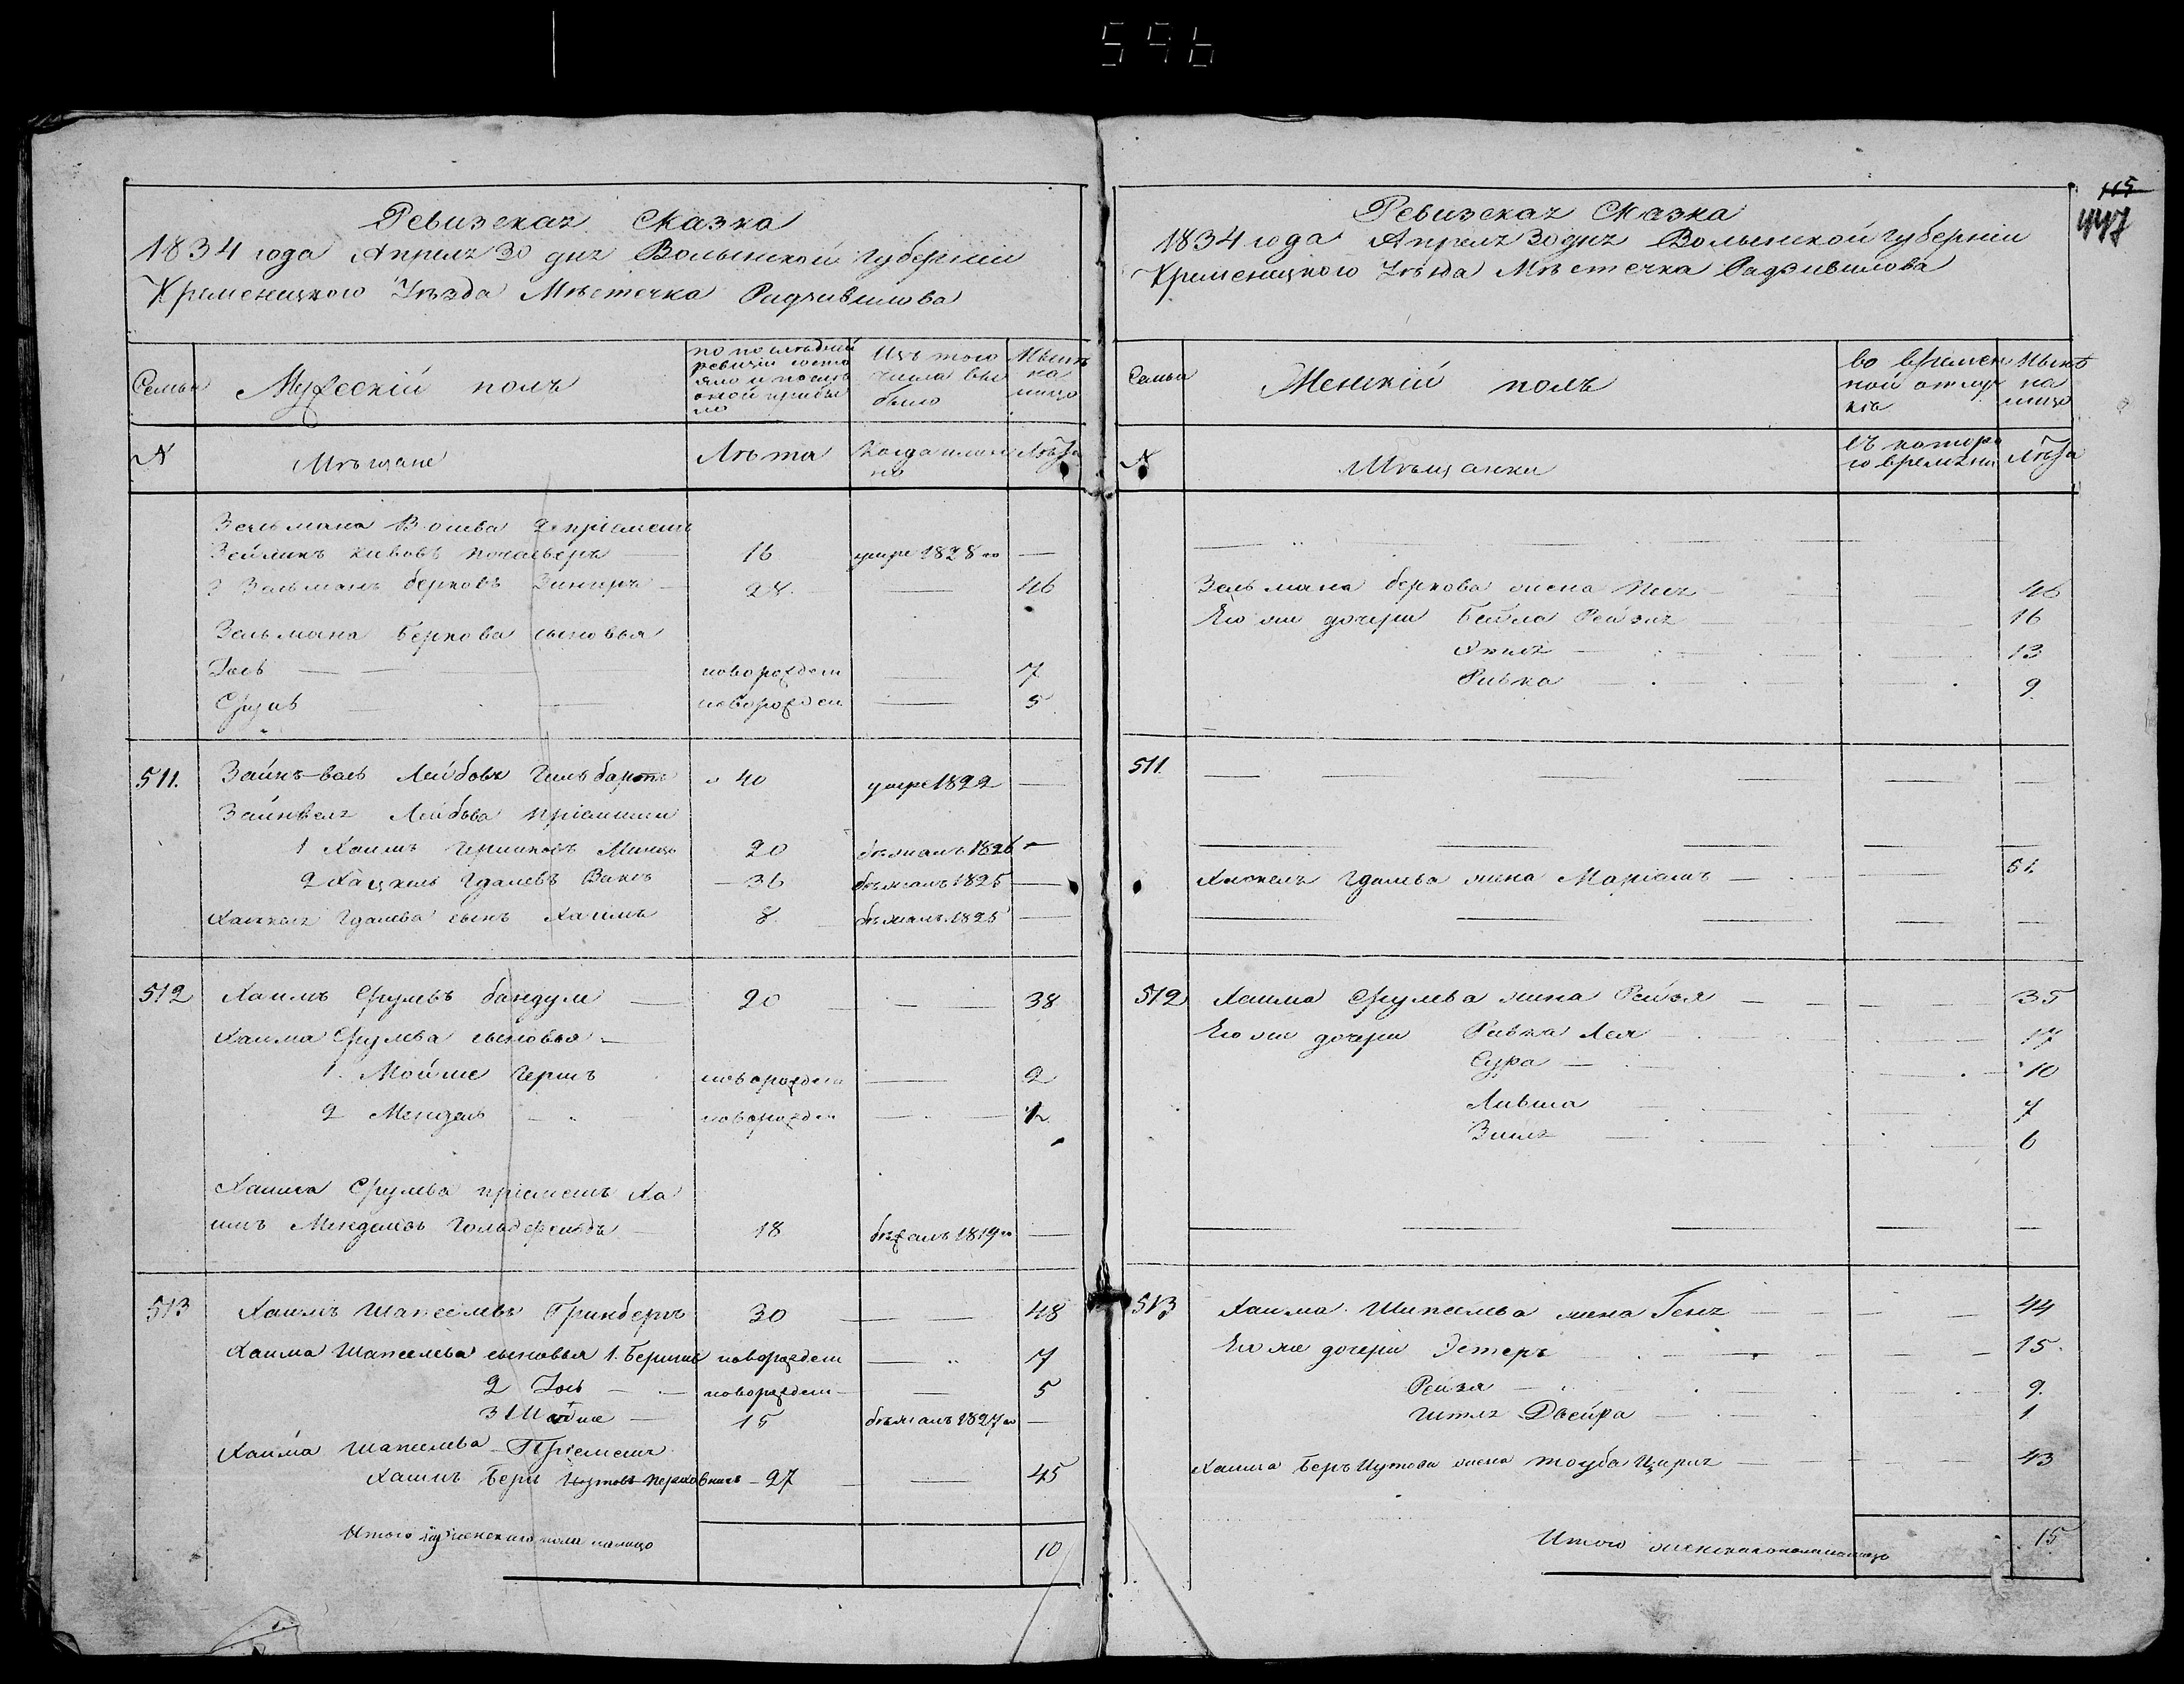 596
Ревизская Сказка
1834 года Апреля 30 дня Волынской Губернии
Кременецкого Уѣзда Мѣстечка Радзивилова
Семьи
Мужескій полъ
по послѣдней ревизіи состояло и послѣ оной прибыло
Изъ того числа выбыло
Нынѣ на лицо
N
Мѣщане
Лѣта
Когда именно
Лѣта
Зельмана Волева 2 пріемышъ
Зейликъ Кивовъ 16 умре 1828 го —
3 Зельманъ Берковъ 28 — 46
Зельмана Беркова сыновья
Іось — новорожден — 7
Сруль — новорожден — 5
511. Зайнвель Лейбовъ 40 умре 1822 —
Зайнвеля Лейбова пріемыши
1 Хаимъ Гершковъ 20 бѣжалъ 1826 —
2 Хацкель Гдалевъ Вакъ 36 бѣжалъ 1825 —
Хацкеля Гдалева сынъ Хаимъ 8 бѣжалъ 1825 —
512 Хаимъ Срулевъ 20 — 38
Хаима Срулева сыновья
1. Мойше Гершъ новорожден — 2
2 Мендель — новорожден — 1
Хаима Срулева пріемышъ Ха
имъ Менделевъ Гольдфельдъ 18 бѣжалъ 1819 го —
513 Хаимъ Шапселевъ Гринберъ 30 — 48
Хаима Шапселева сыновья 1. Берише новорожден — 7
2 Іось — новорожден — 5
3 Мойше — 15 бѣжалъ 1827 го —
Хаима Шапселева Пріемышъ
Хаимъ Беръ 27 — 45
Итого мужескаго пола налицо 10
115
447
Ревизская Сказка
1834 года Апреля 30 дня Волынской Губерніи
Кременецкого Уѣзда Мѣстечка Радзивилова
Семьи
Женскій полъ
во временной отлучкѣ
Нынѣ на лицо
N
Мѣщанки
съ которого времени
Лѣта
Зельмана Беркова жена 46
Его же дочери Бейла Рейзя 16
13
Ривка 9
511
Хацкеля Гдалева жена Маріамъ 51
512 Хаима Срулева жена Рейзя 35
Его же дочери Ривка Лея 17
Сура 10
Ливша 7
Зися 6
513 Хаима Шапселева жена Геня 44
Его же дочери Эстеръ 15
Рейзя 9
Итля Двейра 1
Хаима Беръ Шутова жена Тоуба 43
Итого женскаго пола налицо 15